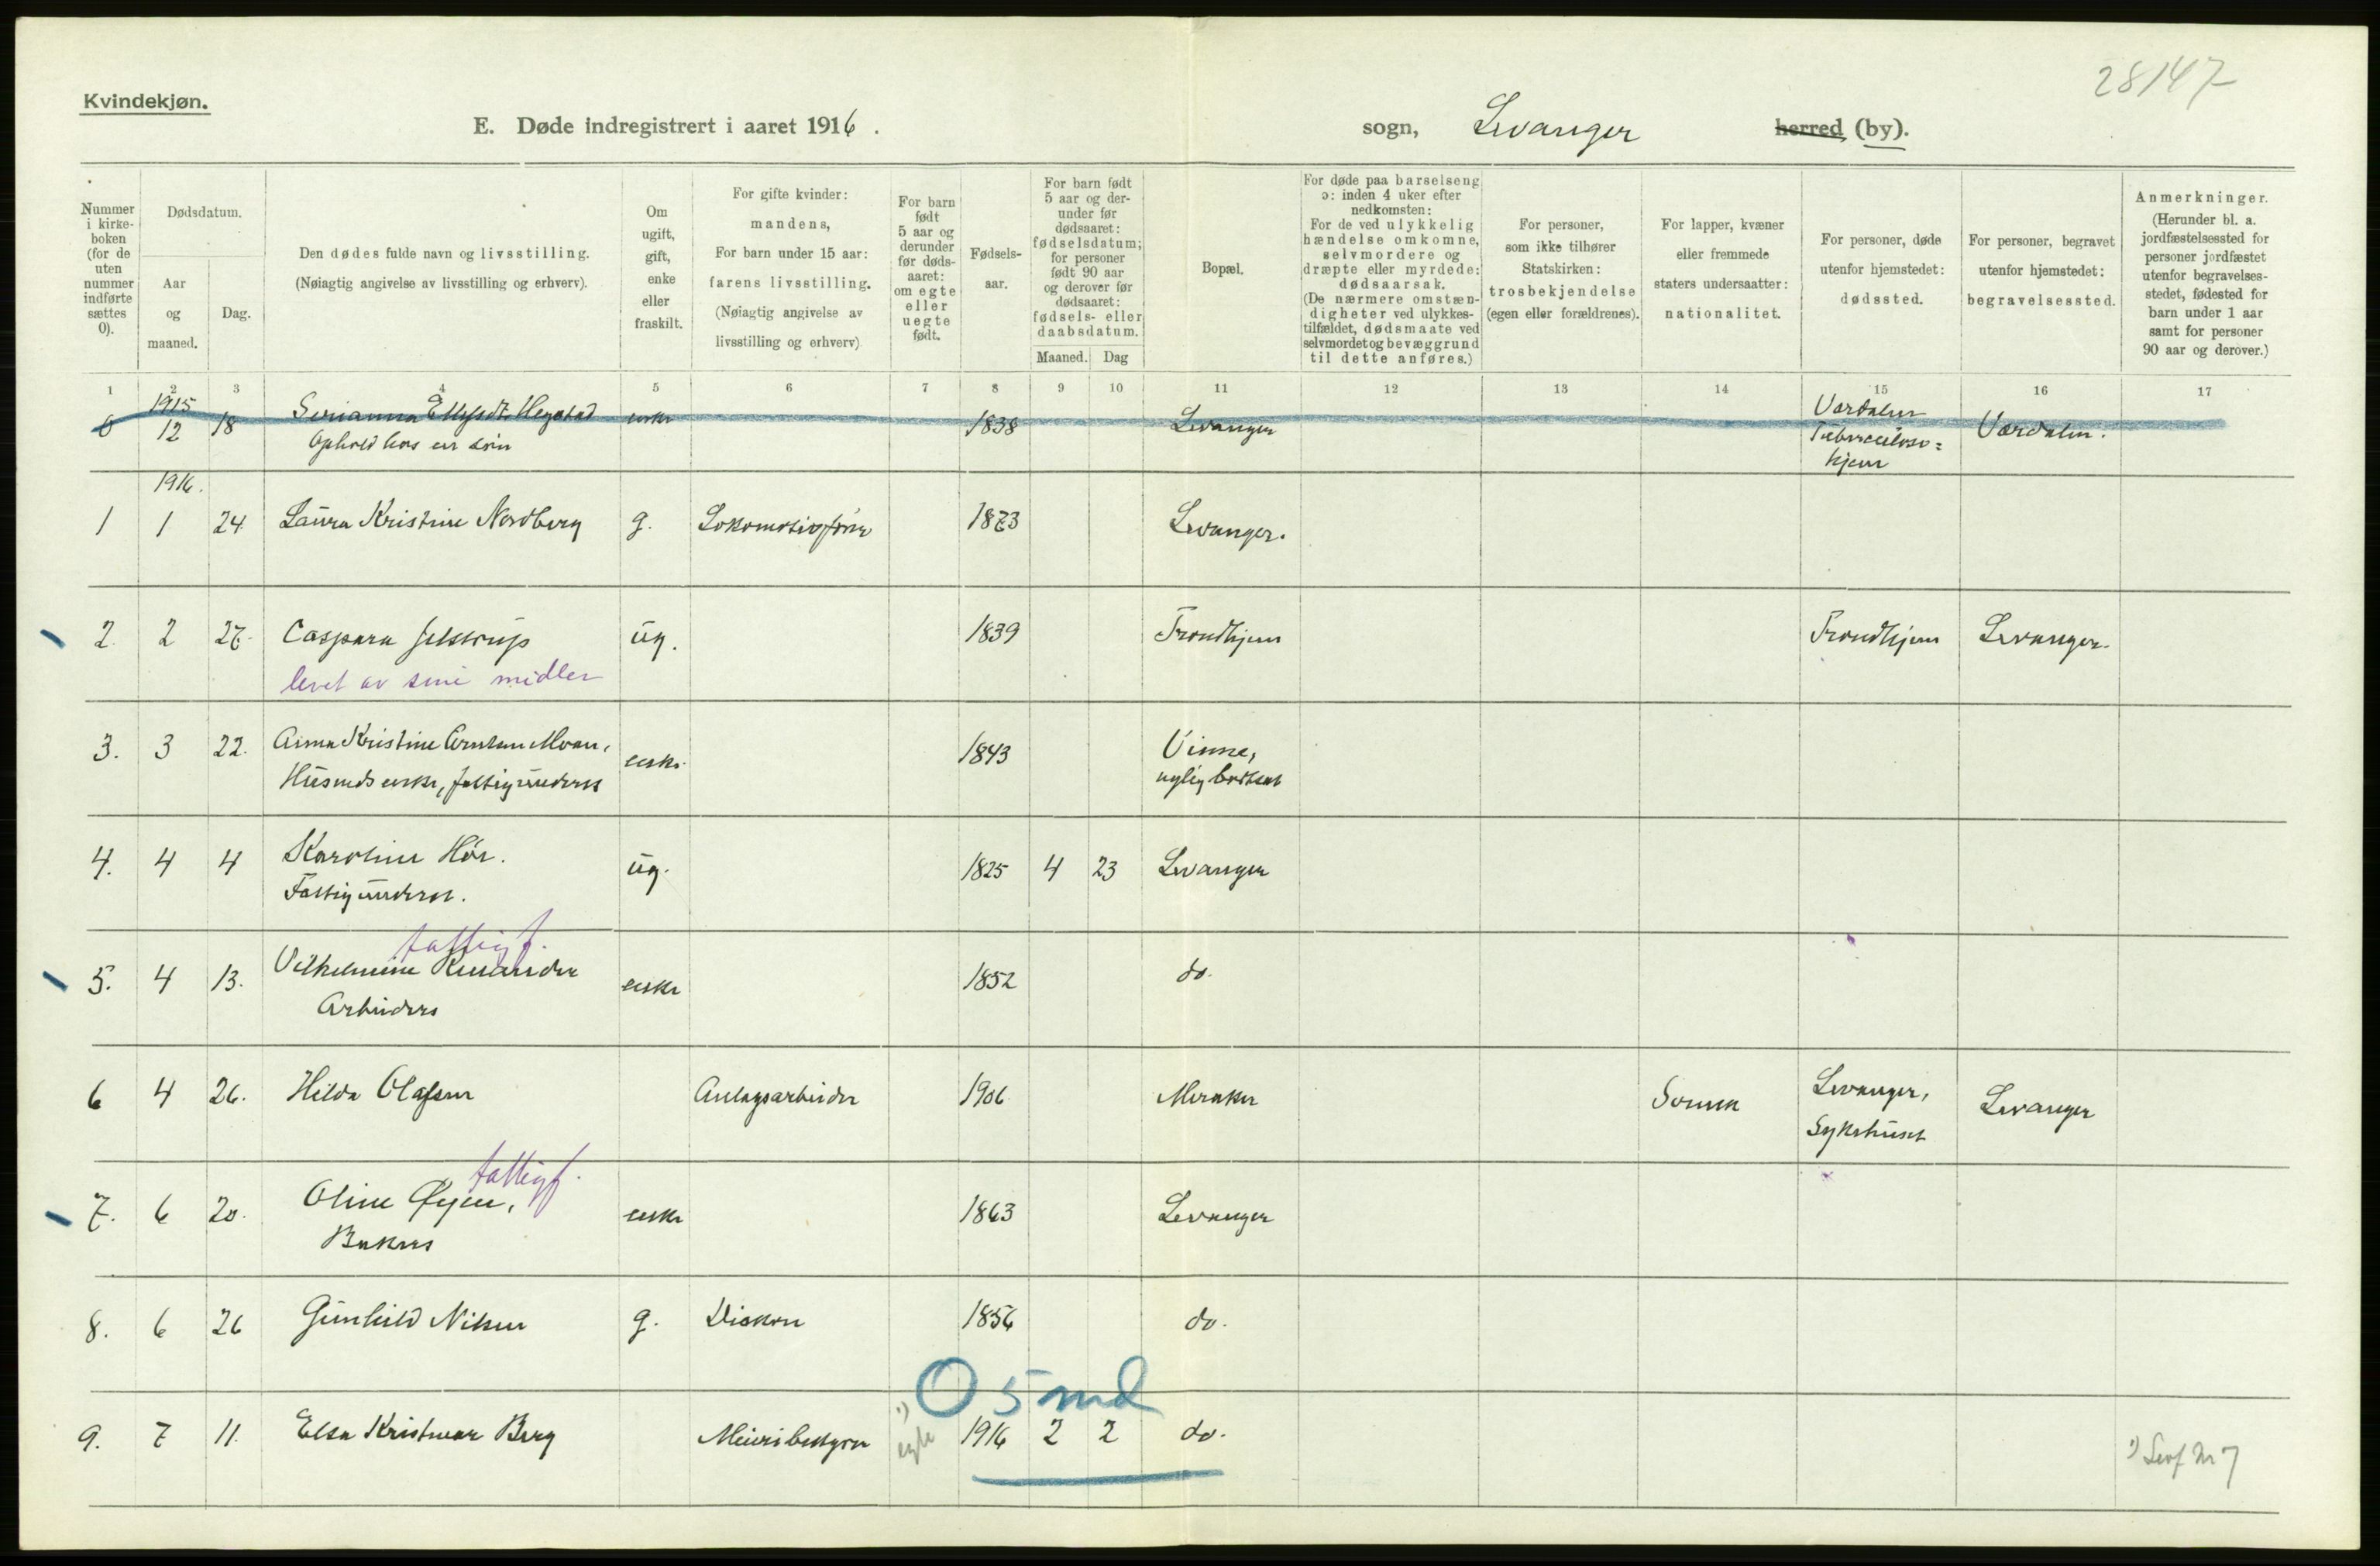 28147
Kvindekjøn.
E. Døde indregistrert i aaret 1916.
sogn, Levanger herred (by).
Nummer i kirke-boken (for de uten nummer indførte sættes 0).
Dødsdatum.
Aar og maaned.
Dag.
Den dødes fulde navn og livsstilling.
(Nøiagtig angivelse av livsstilling og erhverv).
Om ugift, gift, enke eller fraskilt.
For gifte kvinder: mandens,
For barn under 15 aar: farens livsstilling.
(Nøiagtig angivelse av livsstilling og erhverv)
For barn født 5 aar og derunder før døds-aaret: om egte eller uegte født.
Fødsels-aar.
For barn født 5 aar og der-under før dødsaaret: fødselsdatum; for personer født 90 aar og derover før dødsaaret: fødsels- eller daabsdatum.
Maaned.
Dag
Bopæl.
For døde paa barselseng ɔ: inden 4 uker efter nedkomsten:
For de ved ulykkelig hændelse omkomne, selvmordere og dræpte eller myrdede: dødsaarsak.
(De nærmere omstæn-digheter ved ulykkes-tilfældet, dødsmaate ved selvmordet og bevæggrund til dette anføres.)
For personer, som ikke tilhører Statskirken: trosbekjendelse (egen eller forældrenes).
For lapper, kvæner eller fremmede staters undersaatter: nationalitet.
For personer, døde utenfor hjemstedet: dødssted.
For personer, begravet utenfor hjemstedet: begravelsessted.
Anmerkninger.
(Herunder bl. a. jordfæstelsessted for personer jordfæstet utenfor begravelses-stedet, fødested for barn under 1 aar samt for personer 90 aar og derover.)
1 2 3 4 5 6 7 8 9 10 11 12 13 14 15 16 17
1915
0 12 18 Serianna Hegstad enke 1838 Levanger Værdalen Værdalen.
Ophold hos en søn Tuberculose=
hjem
1916.
1 1 24 Laura Kristine Nordberg g. Lokomotivfører 1873 Levanger.
2 2 27. Caspara Jelstrup ug. 1839 Trondhjem Trondhjem Levanger.
levet av sine midler
3. 3 22. Anna Kristine Arntsen Moan, enke. 1843 Vinne,
Husmds enke, fattigunderst nylig bosat
4. 4 4 Karoline Hör. ug. 1825 4 23 Levanger
Fattigunderst.
fattigf.
5. 4 13. Vilhelmine enke 1852 do.
Arbeiders
6 4 26. Hilda Olafsen Anlægsarbeider 1906 Meraker Svensk Levanger, Levanger
Sykehuset
fattigf.
7. 6 20. Oline Øyen, enke 1863 Levanger
Bakers
8. 6 26 Gunhild Nilsen g. Diakon 1856 do.
0 5 md
9. 7 11. Elsa Berg Meieribestyrer 1) egte 1916 2 2 do. 1) Lev f Nr 7